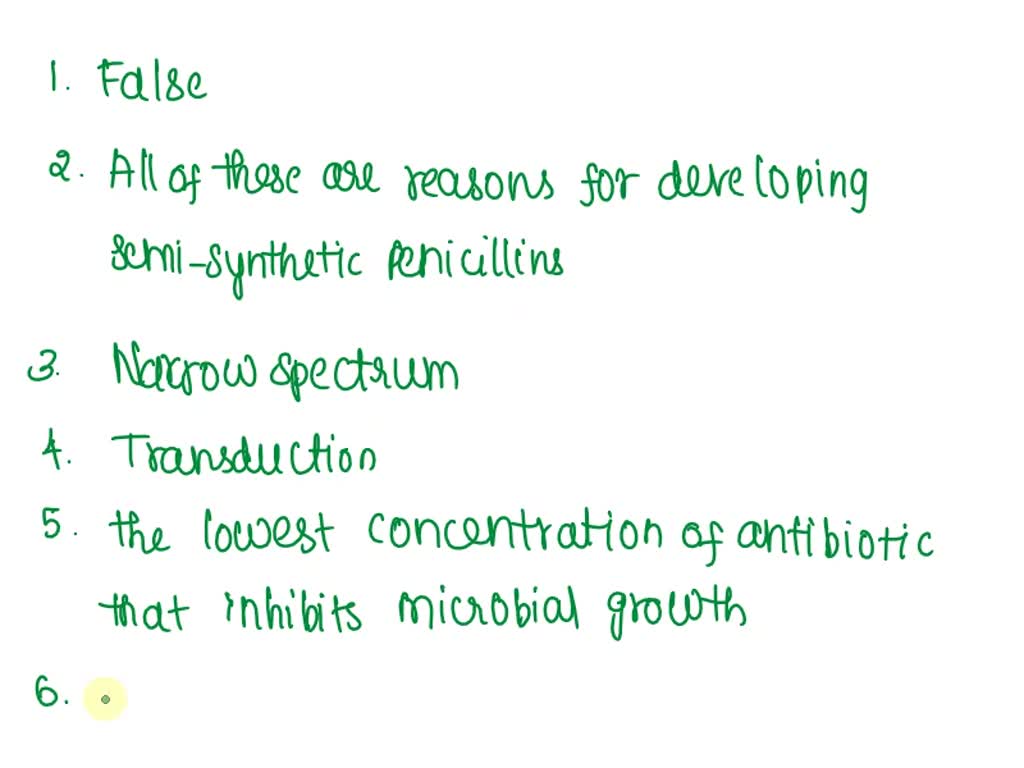 1. False
2. All of these are reasons for developing
semi-synthetic penicillins
3. Narrow spectrum
4. Transduction
5. the lowest concentration of antibiotic
that inhibits microbial growth
6.